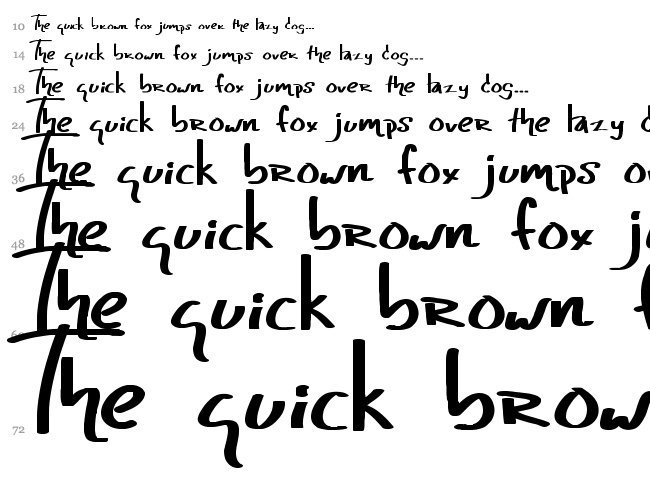 10 The quick brown fox jumps over the lazy dog...
14 The quick brown fox jumps over the lazy dog...
18 The quick brown fox jumps over the lazy dog...
24 The quick brown fox jumps over the lazy
36 The quick brown fox jumps ov
48 The quick brown fox ju
The quick brown f
72 The quick brow